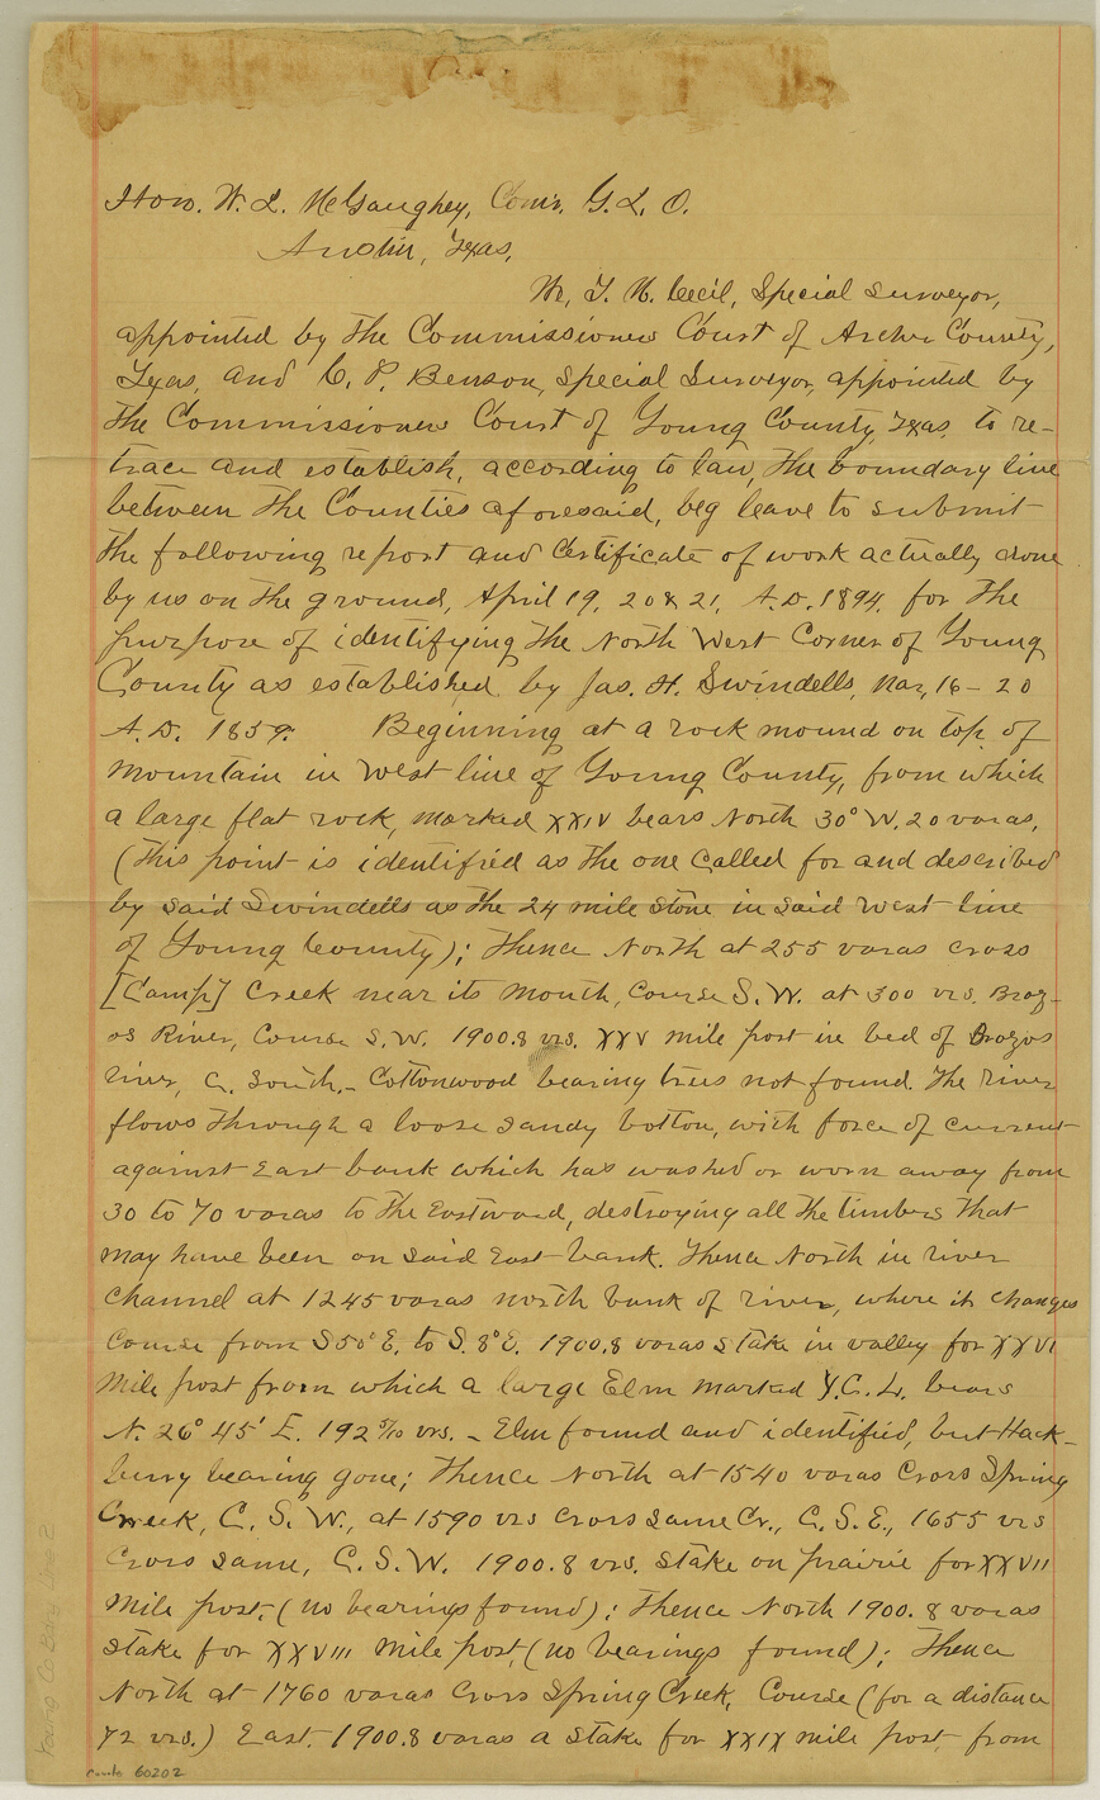 Hon. W. L. McGaughey, Com'r. G. L. O.
Austin, Texas,
We, T. N. Cecil, Special Surveyor,
appointed by the Commissioners Court of Archer County,
Texas, and C. P. Benson, Special Surveyor, appointed by
the Commissioners Court of Young County, Texas, to re-
trace and establish, according to law, the boundary line
between the Counties aforesaid, beg leave to submit
the following report and Certificate of work actually done
by us on the ground, April 19, 20 & 21, A.D. 1894, for the
purpose of identifying the North West Corner of Young
County as established by Jas. H. Swindells, Mar, 16 - 20
A.D. 1859: Beginning at a rock mound on top of
mountain in West line of Young County, from which
a large flat rock, marked XXIV bears North 30° W. 20 varas,
(this point is identified as the one called for and described
by said Swindells as the 24 mile stone in said West line
of Young County); Thence North at 255 varas cross
[Camp] Creek near its mouth, Course S.W. at 300 vrs. Braz-
os River, Course S.W. 1900.8 vrs. XXV mile post in bed of Brazos
river, C. South. - Cottonwood bearing trees not found. The river
flows through a loose sandy bottom, with force of current
against East bank which has washed or worn away from
30 to 70 varas to the Eastward, destroying all the timbers that
may have been on said East bank. Thence North in river
channel at 1245 varas north bank of river, where it changes
Course from S50°E. to S.8°E. 1900.8 varas stake in valley for XXVI
mile post from which a large Elm marked Y.C.L. bears
N. 26° 45' E. 192 5/10 vrs. - Elm found and identified, but Hack-
berry bearing gone; Thence North at 1540 varas Cross Spring
Creek, C. S. W., at 1590 vrs Cross same Cr., C. S. E., 1655 vrs
Cross same, C. S. W. 1900.8 vrs. stake on prairie for XXVII
mile post, (no bearings found); Thence North 1900.8 varas
stake for XXVIII mile post, (no bearings found); Thence
North at 1760 varas Cross Spring Creek, Course (for a distance
72 vrs.) East. 1900.8 varas a stake for XXIX mile post, from
Young Co Bdry Line 2
counter 60202